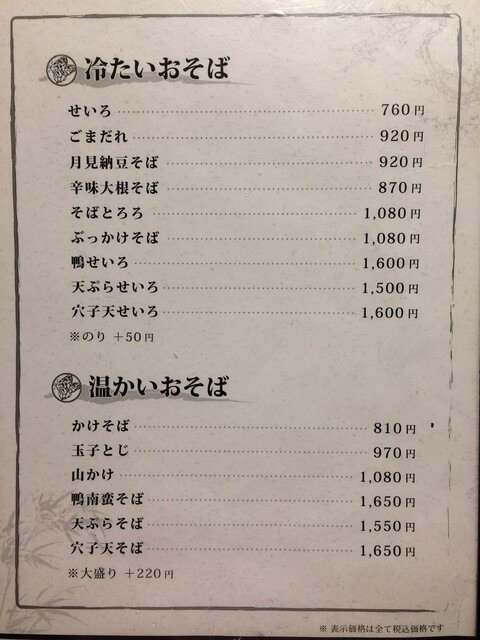 冷たいおそば
せいろ 760円
ごまだれ 920円
月見納豆そば 920円
辛味大根そば 870円
そばとろろ 1,080円
ぶっかけそば 1,080円
鴨せいろ 1,600円
天ぷらせいろ 1,500円
穴子天せいろ 1,600円
※のり +50円
温かいおそば
かけそば 810円
玉子とじ 970円
山かけ 1,080円
鴨南蛮そば 1,650円
天ぷらそば 1,550円
穴子天そば 1,650円
※大盛り +220円
※ 表示価格は全て税込価格です